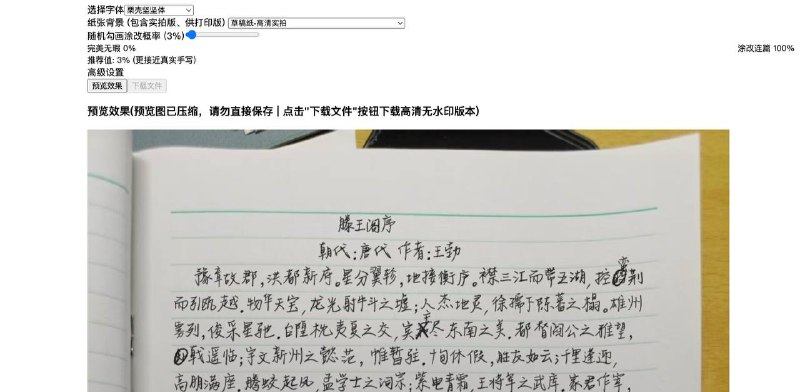 选择字体 栗壳坚坚体
纸张背景 (包含实拍版、供打印版) 草稿纸-高清实拍
随机勾画涂改概率 (3%)
完美无瑕 0% 涂改连篇 100%
推荐值: 3% (更接近真实手写)
高级设置
预览效果 下载文件
预览效果(预览图已压缩，请勿直接保存 | 点击"下载文件"按钮下载高清无水印版本)
滕王阁序
朝代:唐代 作者:王勃
豫章故郡,洪都新府。星分翼轸,地接衡庐。襟三江而带五湖,控蛮荆
而引瓯越。物华天宝,龙光射牛斗之墟;人杰地灵,徐孺下陈蕃之榻。雄州
雾列,俊采星驰。台隍枕夷夏之交,宾主尽东南之美。都督阎公之雅望,
戟遥临;宇文新州之懿范,帷暂驻。十旬休假,胜友如云;千里逢迎,
高朋满座。腾蛟起凤,孟学士之词宗;紫电青霜,王将军之武库。家君作宰,